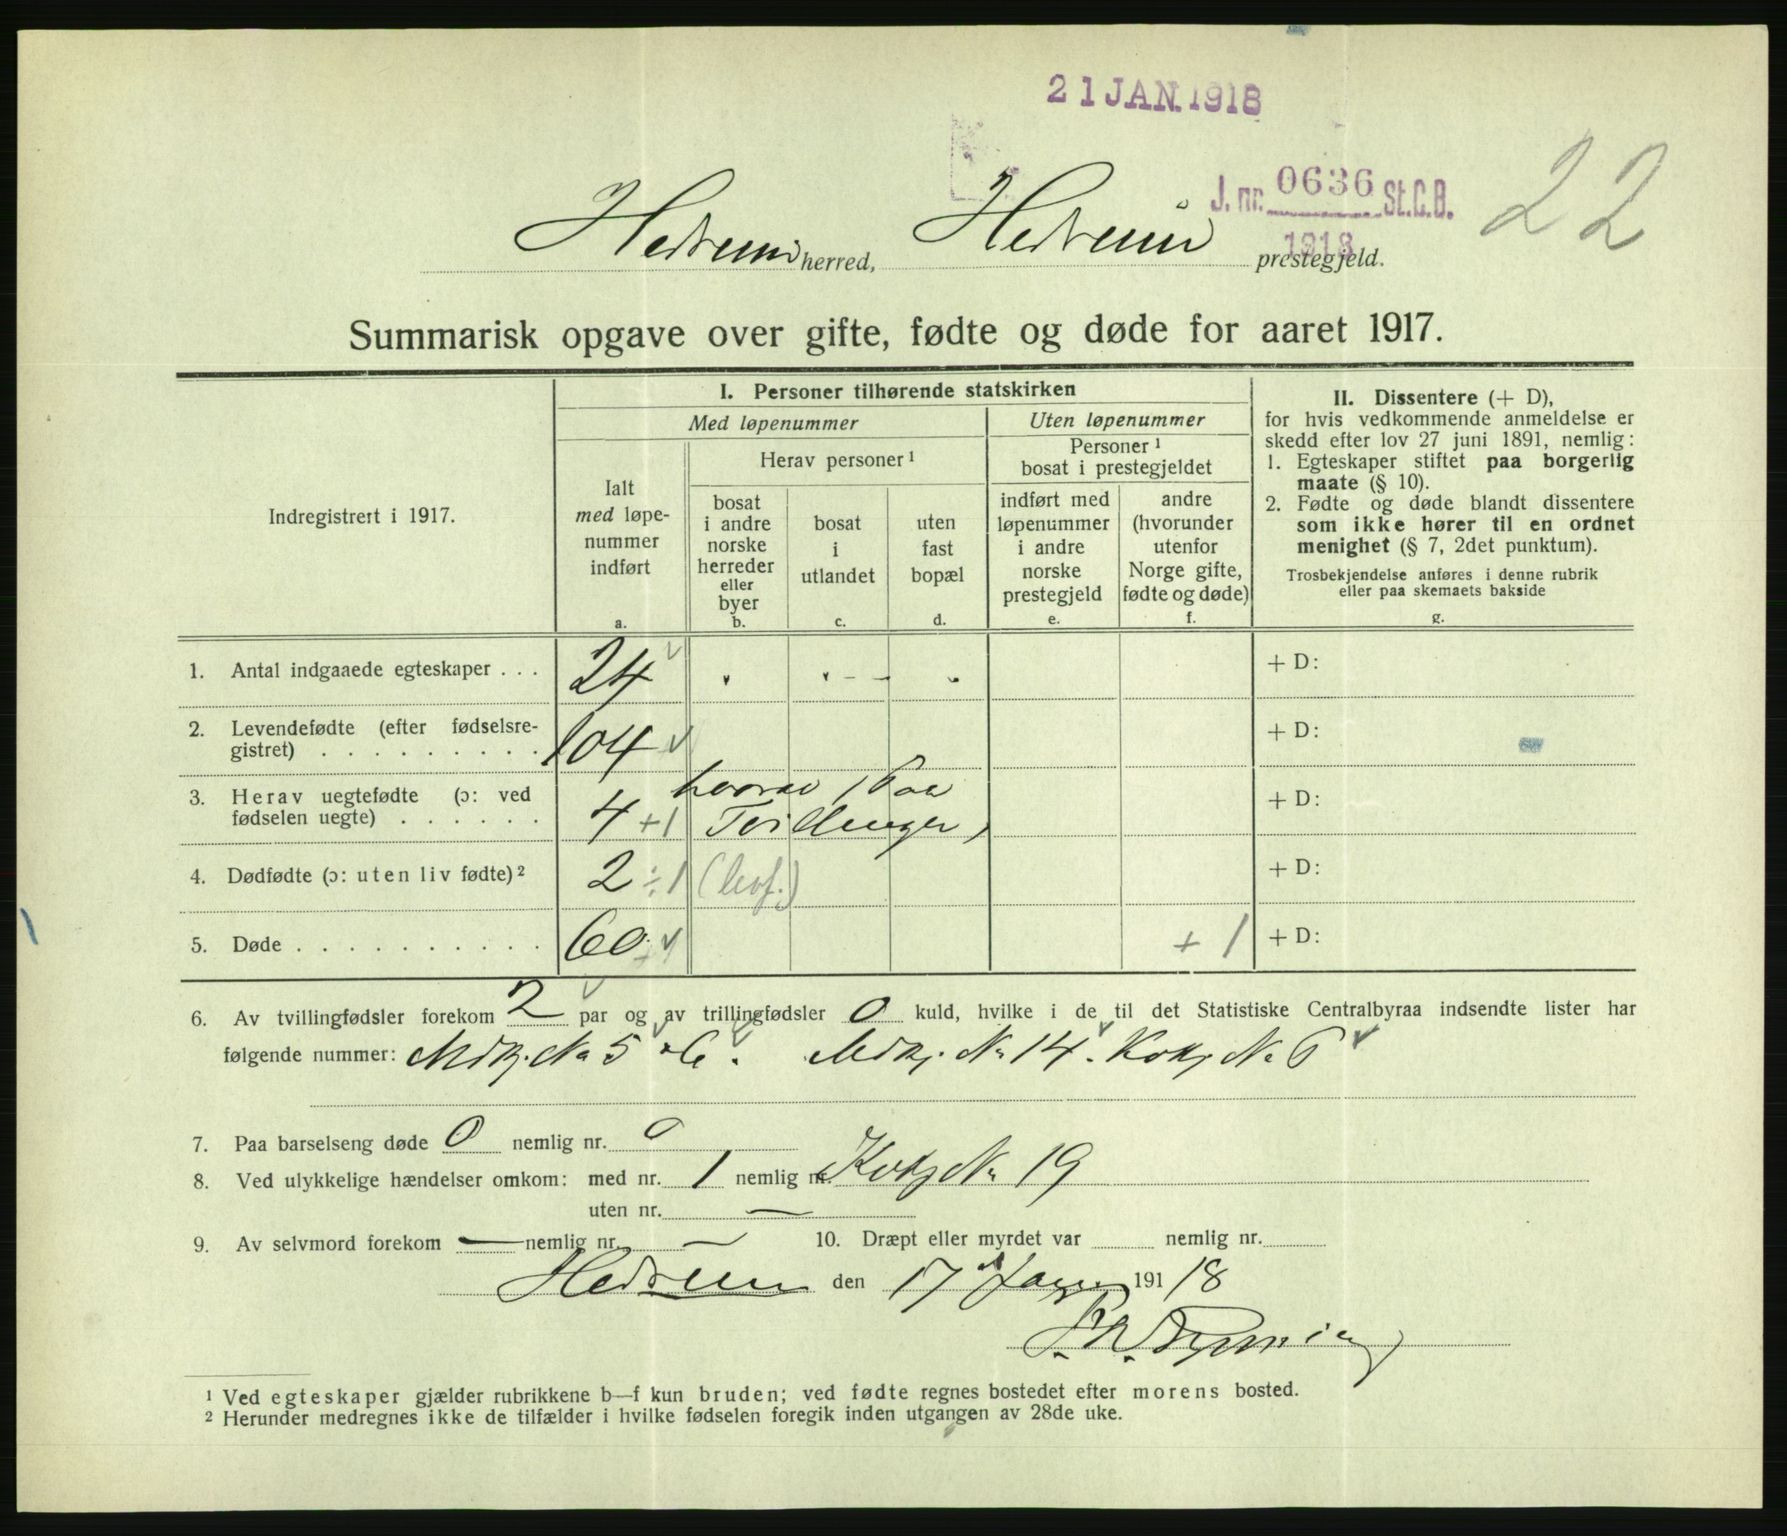 21 JAN. 1918
J. nr. 0636 St.C.B.
1918
22
Hedrum herred, Hedrum prestegjeld.
Summarisk opgave over gifte, fødte og døde for aaret 1917.
Indregistrert i 1917.
I. Personer tilhørende statskirken
Med løpenummer
Uten løpenummer
Ialt
med løpe-
nummer
indført
a.
Herav personer 1
bosat
i andre
norske
herreder
eller
byer
b.
bosat
i
utlandet
c.
uten
fast
bopæl
d.
Personer 1
bosat i prestegjeldet
indført med
løpenummer
i andre
norske
prestegjeld
e.
andre
(hvorunder
utenfor
Norge gifte,
fødte og døde)
f.
II. Dissentere (+ D),
for hvis vedkommende anmeldelse er
skedd efter lov 27 juni 1891, nemlig:
1. Egteskaper stiftet paa borgerlig
maate (§ 10).
2. Fødte og døde blandt dissentere
som ikke hører til en ordnet
menighet (§ 7, 2det punktum).
Trosbekjendelse anføres i denne rubrik
eller paa skemaets bakside
g.
1. Antal indgaaede egteskaper . . . 24 + D:
2. Levendefødte (efter fødselsre-
gistret) . . . . . . . . . 104 + D:
3. Herav uegtefødte (ɔ: ved
fødselen uegte) . . . . . . 4 +1 hvorav 1 Par Tvillinger, + D:
4. Dødfødte (ɔ: uten liv fødte) 2 2 ÷1 (levf.) + D:
5. Døde . . . . . . . . . . 60 ÷1 + 1 + D:
6. Av tvillingfødsler forekom 2 par og av trillingfødsler 0 kuld, hvilke i de til det Statistiske Centralbyraa indsendte lister har
følgende nummer: Mdkj. No 5 & 6. Mdkj. No 14. Kvkj No 6
7. Paa barselseng døde 0 nemlig nr. 0
8. Ved ulykkelige hændelser omkom: med nr. 1 nemlig nr. Kvkj No 19
uten nr. —
9. Av selvmord forekom — nemlig nr. — 10. Dræpt eller myrdet var nemlig nr.
Hedrum den 17 Januar 1918
1 Ved egteskaper gjælder rubrikkene b—f kun bruden; ved fødte regnes bostedet efter morens bosted.
2 Herunder medregnes ikke de tilfælder i hvilke fødselen foregik inden utgangen av 28de uke.